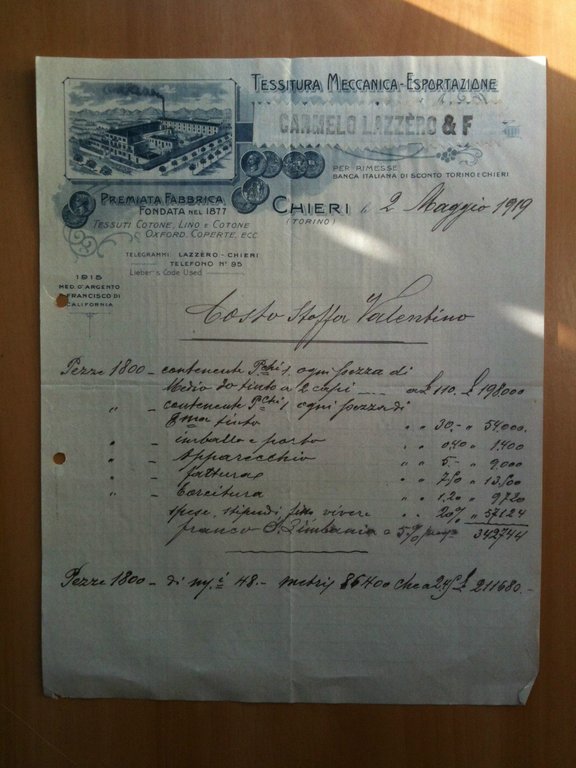 TESSITURA MECCANICA-ESPORTAZIONE
CARMELO LAZZÈRO & F
PER RIMESSE
BANCA ITALIANA DI SCONTO TORINO E CHIERI
PREMIATA FABBRICA
FONDATA NEL 1877
TESSUTI COTONE, LINO E COTONE
OXFORD. COPERTE, ECC
CHIERI li 2 Maggio 1919
(TORINO)
TELEGRAMMI: LAZZÈRO - CHIERI
TELEFONO Nº 95
Lieber's Code Used
1915
MED. D'ARGENTO
FRANCISCO DI
CALIFORNIA
Costo Stoffa Valentino
Pezze 1800 - contenente Pchi 1, ogni pezza di
Medio do tinto a 2 capi a £ 110. £ 198.000
" - contenente Pchi 1 ogni pezza di
tinto " " 30.- " 54.000.
" - imballo e porto " " 0,40 " 1.400
" - Apparecchio " " 5.- " 9.000
" - fattura " " 7.50 " 13.500
" - Torcitura " " 1.20 " 9.720
spese, stipendi, vivere " 20% " 57124
franco a 5% 342744
Pezze 1800 - di 48.- metri 86400 che a £ 211680.-